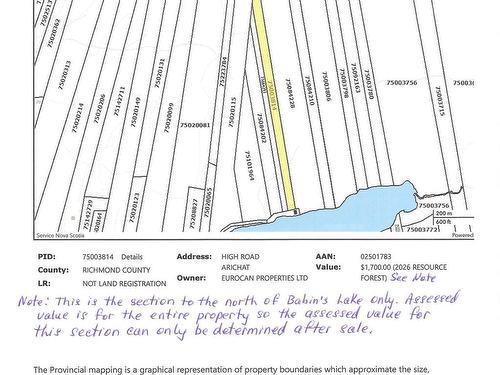 75020362
75020313
75020214
75020206
75142711
75020149
75020131
75020099
75020081
75223784
75020115
75084202
75003814
75084228
75084210
75003806
75003798
75092163
75003780
75003756
75003715
75101964
75142729
75020123
75208827
75020065
75003756
75003772
200 m
600 ft
Service Nova Scotia
Powered
PID: 75003814 Details Address: HIGH ROAD AAN: 02501783
County: RICHMOND COUNTY ARICHAT Value: $1,700.00 (2026 RESOURCE
LR: NOT LAND REGISTRATION Owner: EUROCAN PROPERTIES LTD FOREST) See Note
Note: This is the section to the north of Babin's Lake only. Assessed
value is for the entire property so the assessed value for
this section can only be determined after sale.
The Provincial mapping is a graphical representation of property boundaries which approximate the size,